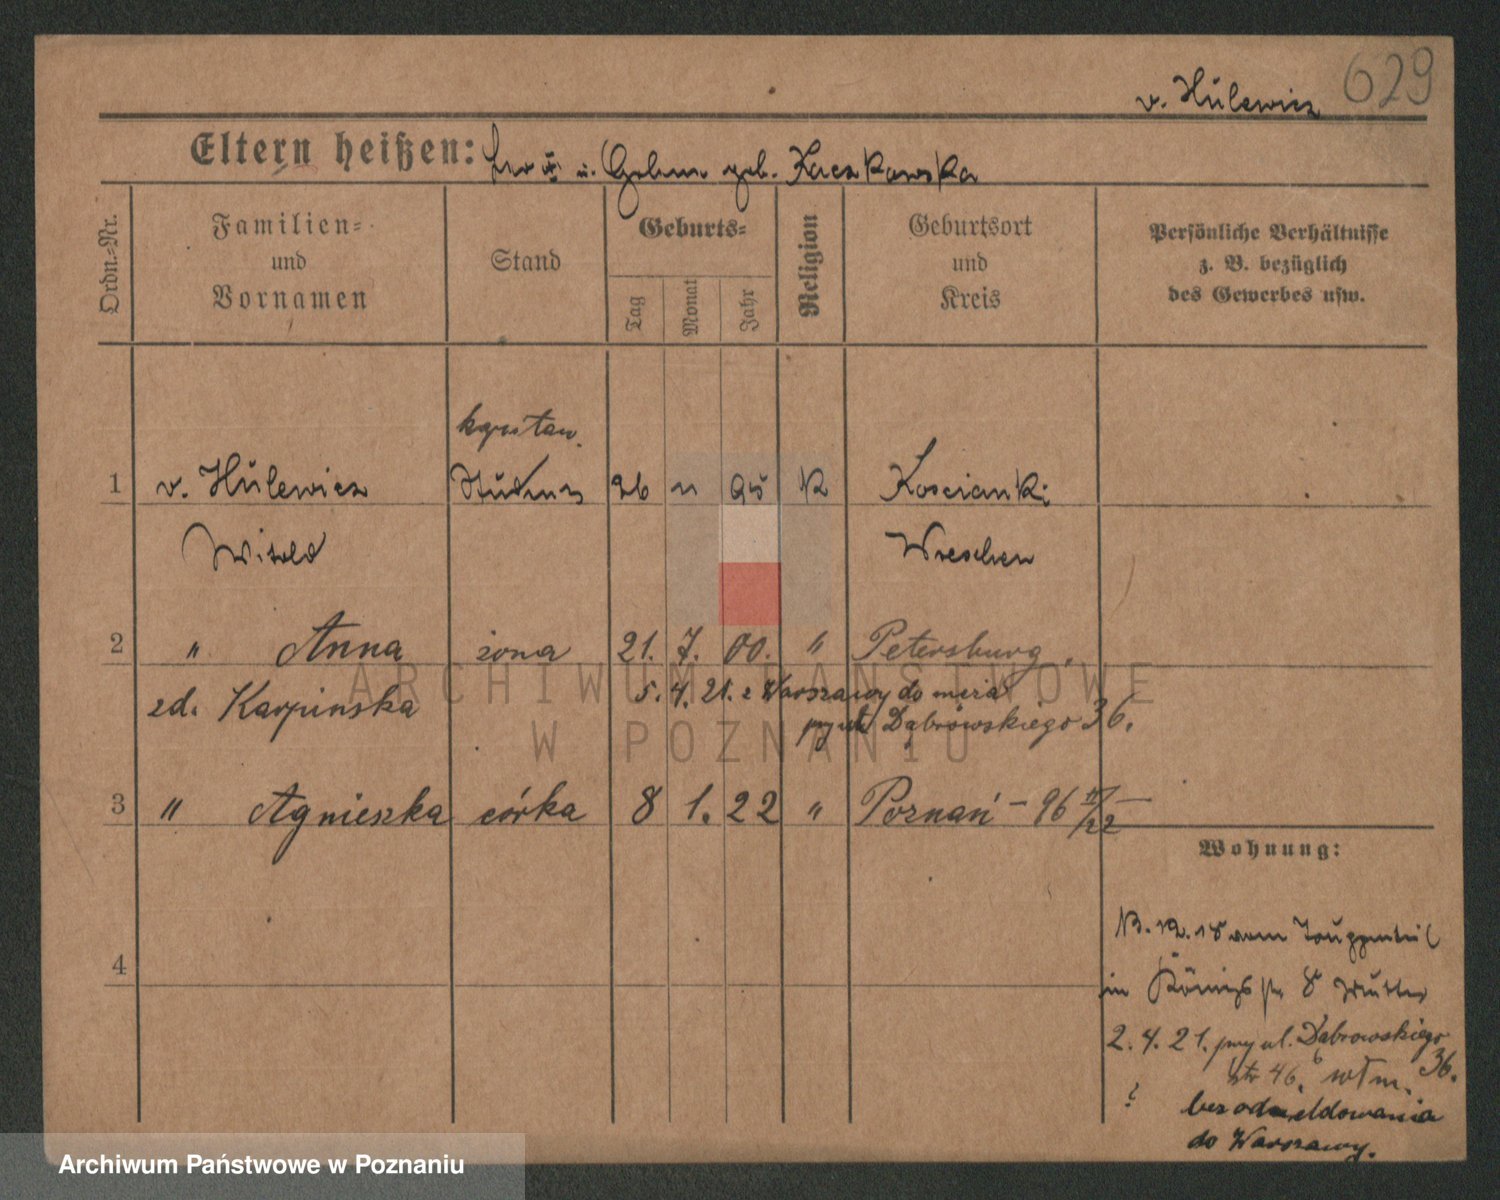 629
v. Hulewicz
Eltern heißen: u. geb. Kaczkowska
Ordn.-Nr.
Familien- und Vornamen
Stand
Geburts-
Tag
Monat
Jahr
Religion
Geburtsort und Kreis
Persönliche Verhältnisse z. B. bezüglich des Gewerbes usw.
kapitan
1 v. Hulewicz 26 11 95 K Koscianki
Witold Wreschen
2 " Anna żona 21. 7. 00. " Petersburg
zd. Karpinska 5. 4. 21. z Warszawy do męża
przy ul. Dąbrowskiego 36.
3 " Agnieszka córka 8 1. 22 " Poznań - 96 II/22
Wohnung:
4
in Königstr. 8 Mutter
2. 4. 21. przy ul. Dąbrowskiego 36.
str 46. włm.
bez odmeldowania
do Warszawy.
ARCHIWUM PAŃSTWOWE
W POZNANIU
Archiwum Państwowe w Poznaniu